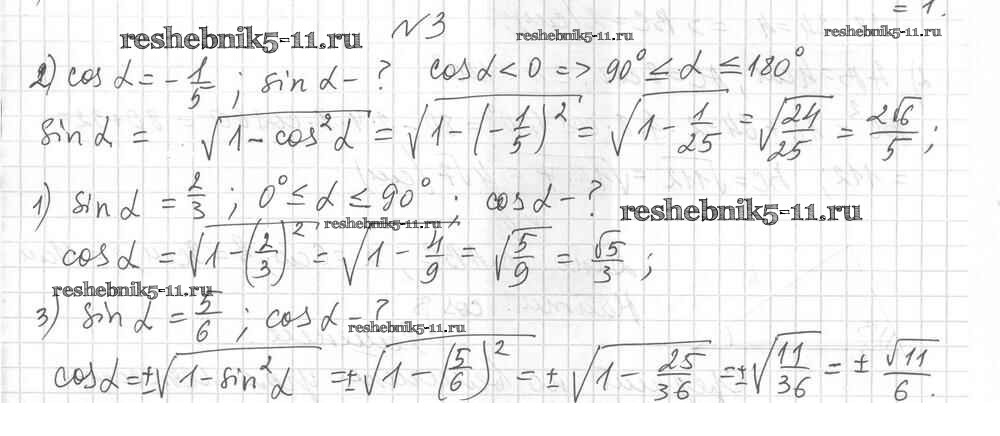 = 1.
reshebnik5-11.ru №3 reshebnik5-11.ru reshebnik5-11.ru
2) cos α = -1/5 ; sin α - ? cos α < 0 => 90° ≤ α ≤ 180°
sin α = √(1 - cos²α) = √(1 - (-1/5)²) = √(1 - 1/25) = √(24/25) = 2√6/5 ;
1) sin α = 2/3 ; 0° ≤ α ≤ 90° ; cos α - ?
reshebnik5-11.ru reshebnik5-11.ru
cos α = √(1 - (2/3)²) = √(1 - 4/9) = √(5/9) = √5/3 ;
reshebnik5-11.ru
3) sin α = 5/6 ; cos α - ?
reshebnik5-11.ru
cos α = ±√(1 - sin²α) = ±√(1 - (5/6)²) = ±√(1 - 25/36) = ±√(11/36) = ± √11/6.